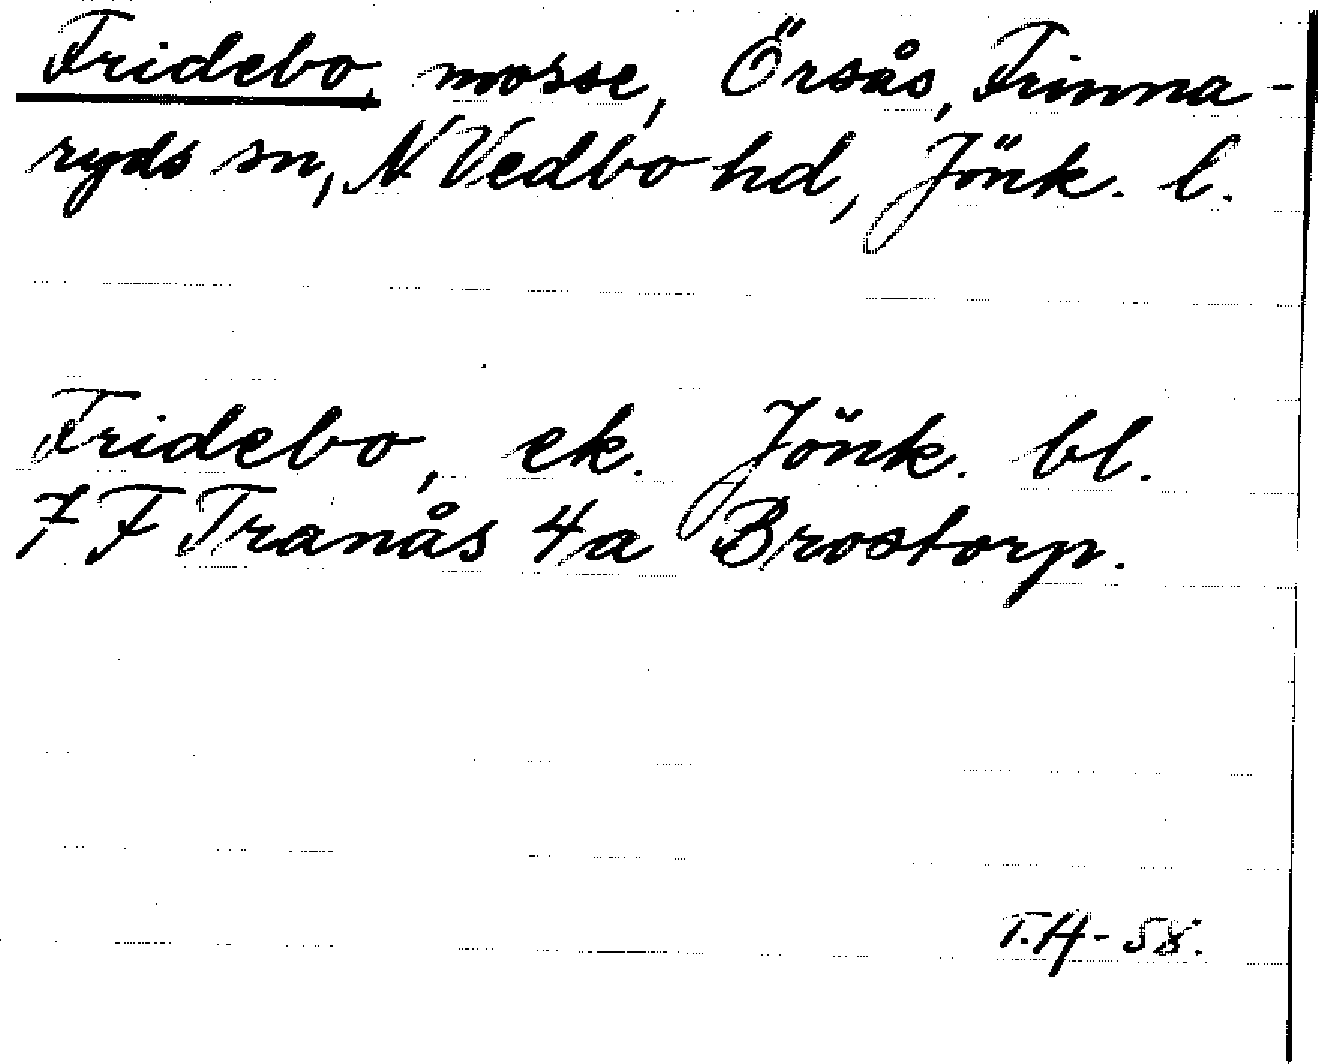 Fridebo, mosse, Örsås, Finna-
ryds sn, N Vedbo hd, Jönk. l.
Fridebo, ek. Jönk. bl.
7 F Tranås 4a Brostorp.
T.H-58.